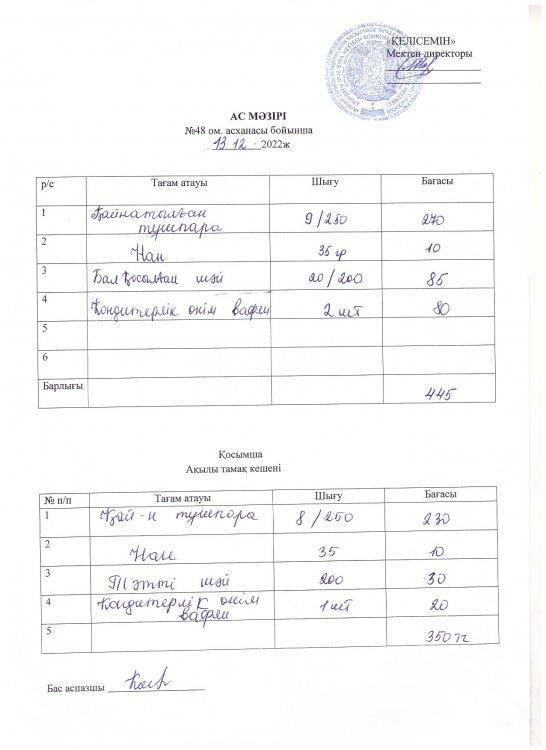 «КЕЛІСЕМІН»
Мектеп директоры
АС МӘЗІРІ
№48 ом. асханасы бойынша
13.12 2022ж
р/с Тағам атауы Шығу Бағасы
1 Қайнатылған тұшпара 9/250 270
2 Нан 35 гр 10
3 Бал қосылған шәй 20/200 85
4 Кондитерлік өнім вафли 2 шт 80
5
6
Барлығы 445
Қосымша
Ақылы тамақ кешені
№ п/п Тағам атауы Шығу Бағасы
1 Қай-н тұшпара 8/250 230
2 Нан 35 10
3 Тәтті шәй 200 30
4 Кондитерлік өнім вафли 1 шт 20
5 350 тг
Бас аспазшы